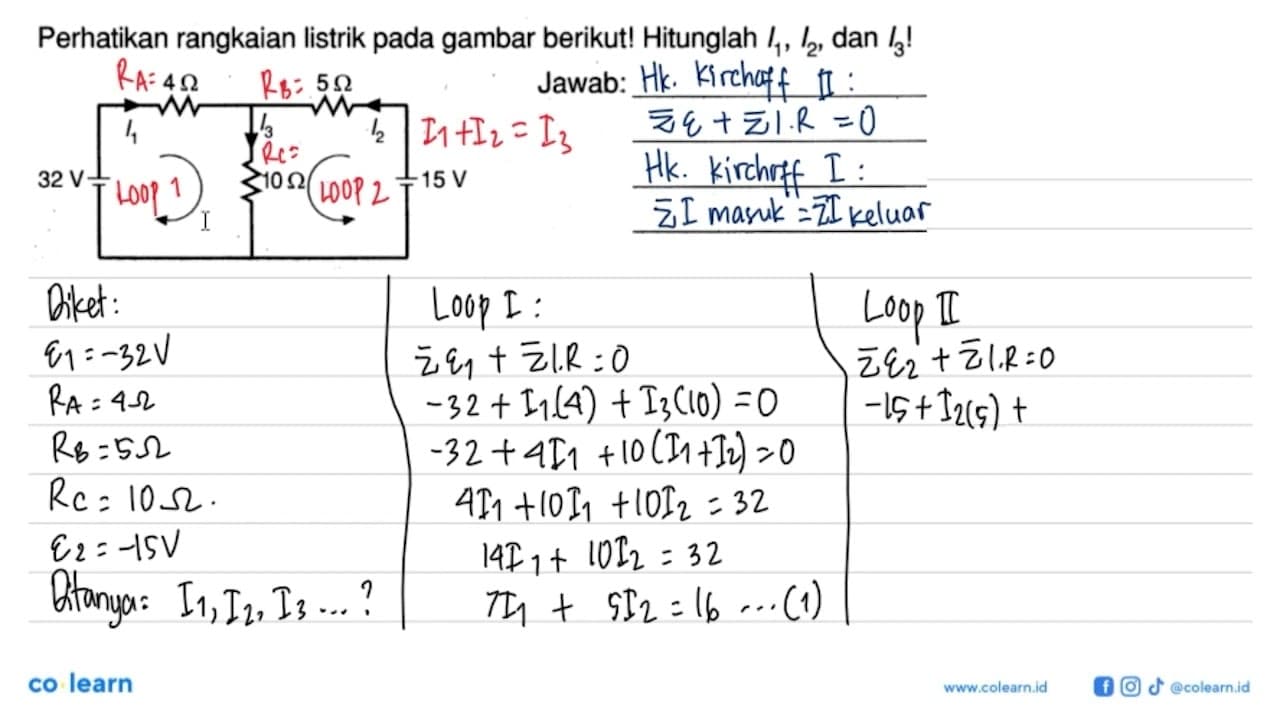 Perhatikan rangkaian listrik pada gambar berikut! Hitunglah I₁, I₂, dan I₃!
RA= 4 Ω RB= 5 Ω
Jawab: Hk. Kirchoff II :
Σε + ΣI.R = 0
Hk. Kirchoff I :
ΣI masuk = ΣI keluar
I₁ I₃ I₂ I₁+I₂ = I₃
RC=
32 V LOOP 1 10 Ω LOOP 2 15 V
Diket:
ε1 = -32V
RA = 4Ω
RB = 5Ω
RC = 10 Ω.
ε2 = -15V
Ditanya= I1, I2, I3 ... ?
Loop I :
Σε1 + ΣI.R = 0
-32 + I1(4) + I3(10) = 0
-32 + 4I1 + 10(I1+I2) = 0
4I1 + 10I1 + 10I2 = 32
14I1 + 10I2 = 32
7I1 + 5I2 = 16 ... (1)
Loop II
Σε2 + ΣI.R = 0
-15 + I2(5) +
co learn
www.colearn.id
@colearn.id